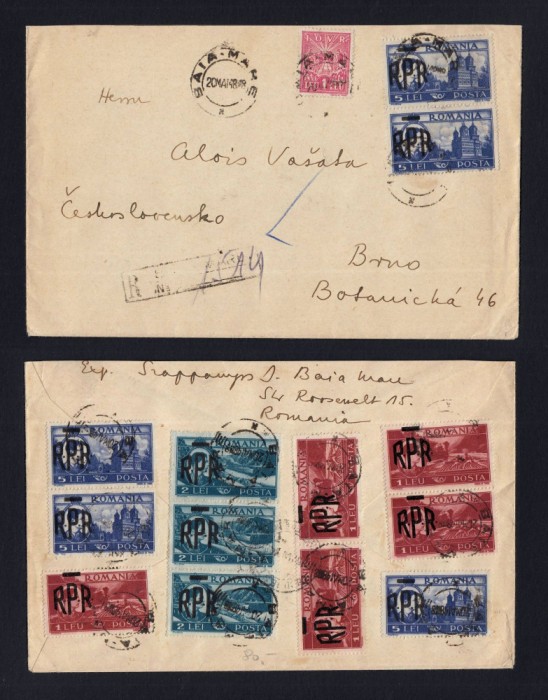 BAIA-MARE
20MAI948
I.O.V.R.
ROMANIA
RPR
5 LEI POSTA
ROMANIA
RPR
5 LEI POSTA
Herrn
Alois Vašata
Československo
Brno
Botanická 46
R
Exp. J. Baia Mare
Str Roosevelt 15.
Romania
ROMANIA
RPR
5 LEI POSTA
ROMANIA
RPR
5 LEI POSTA
ROMANIA
RPR
1 LEU POSTA
ROMANIA
RPR
2 LEI POSTA
ROMANIA
RPR
2 LEI POSTA
ROMANIA
RPR
2 LEI POSTA
ROMANIA
RPR
1 LEU POSTA
ROMANIA
RPR
1 LEU POSTA
ROMANIA
RPR
1 LEU POSTA
ROMANIA
RPR
1 LEU POSTA
ROMANIA
RPR
5 LEI POSTA
80,-